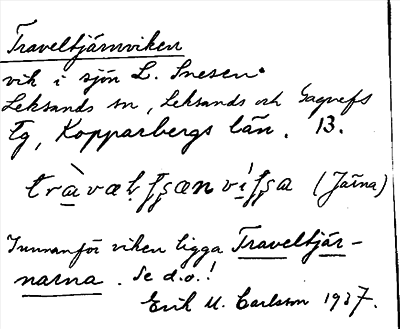 Traveltjärnviken
vik i sjön L. Snesen.
Leksands sn, Leksands och Gagnefs
tg, Kopparbergs län. 13.
(Järna)
Innanför viken ligga Traveltjär-
narna. Se d.o.!
Erik M. Carlsson 1937.